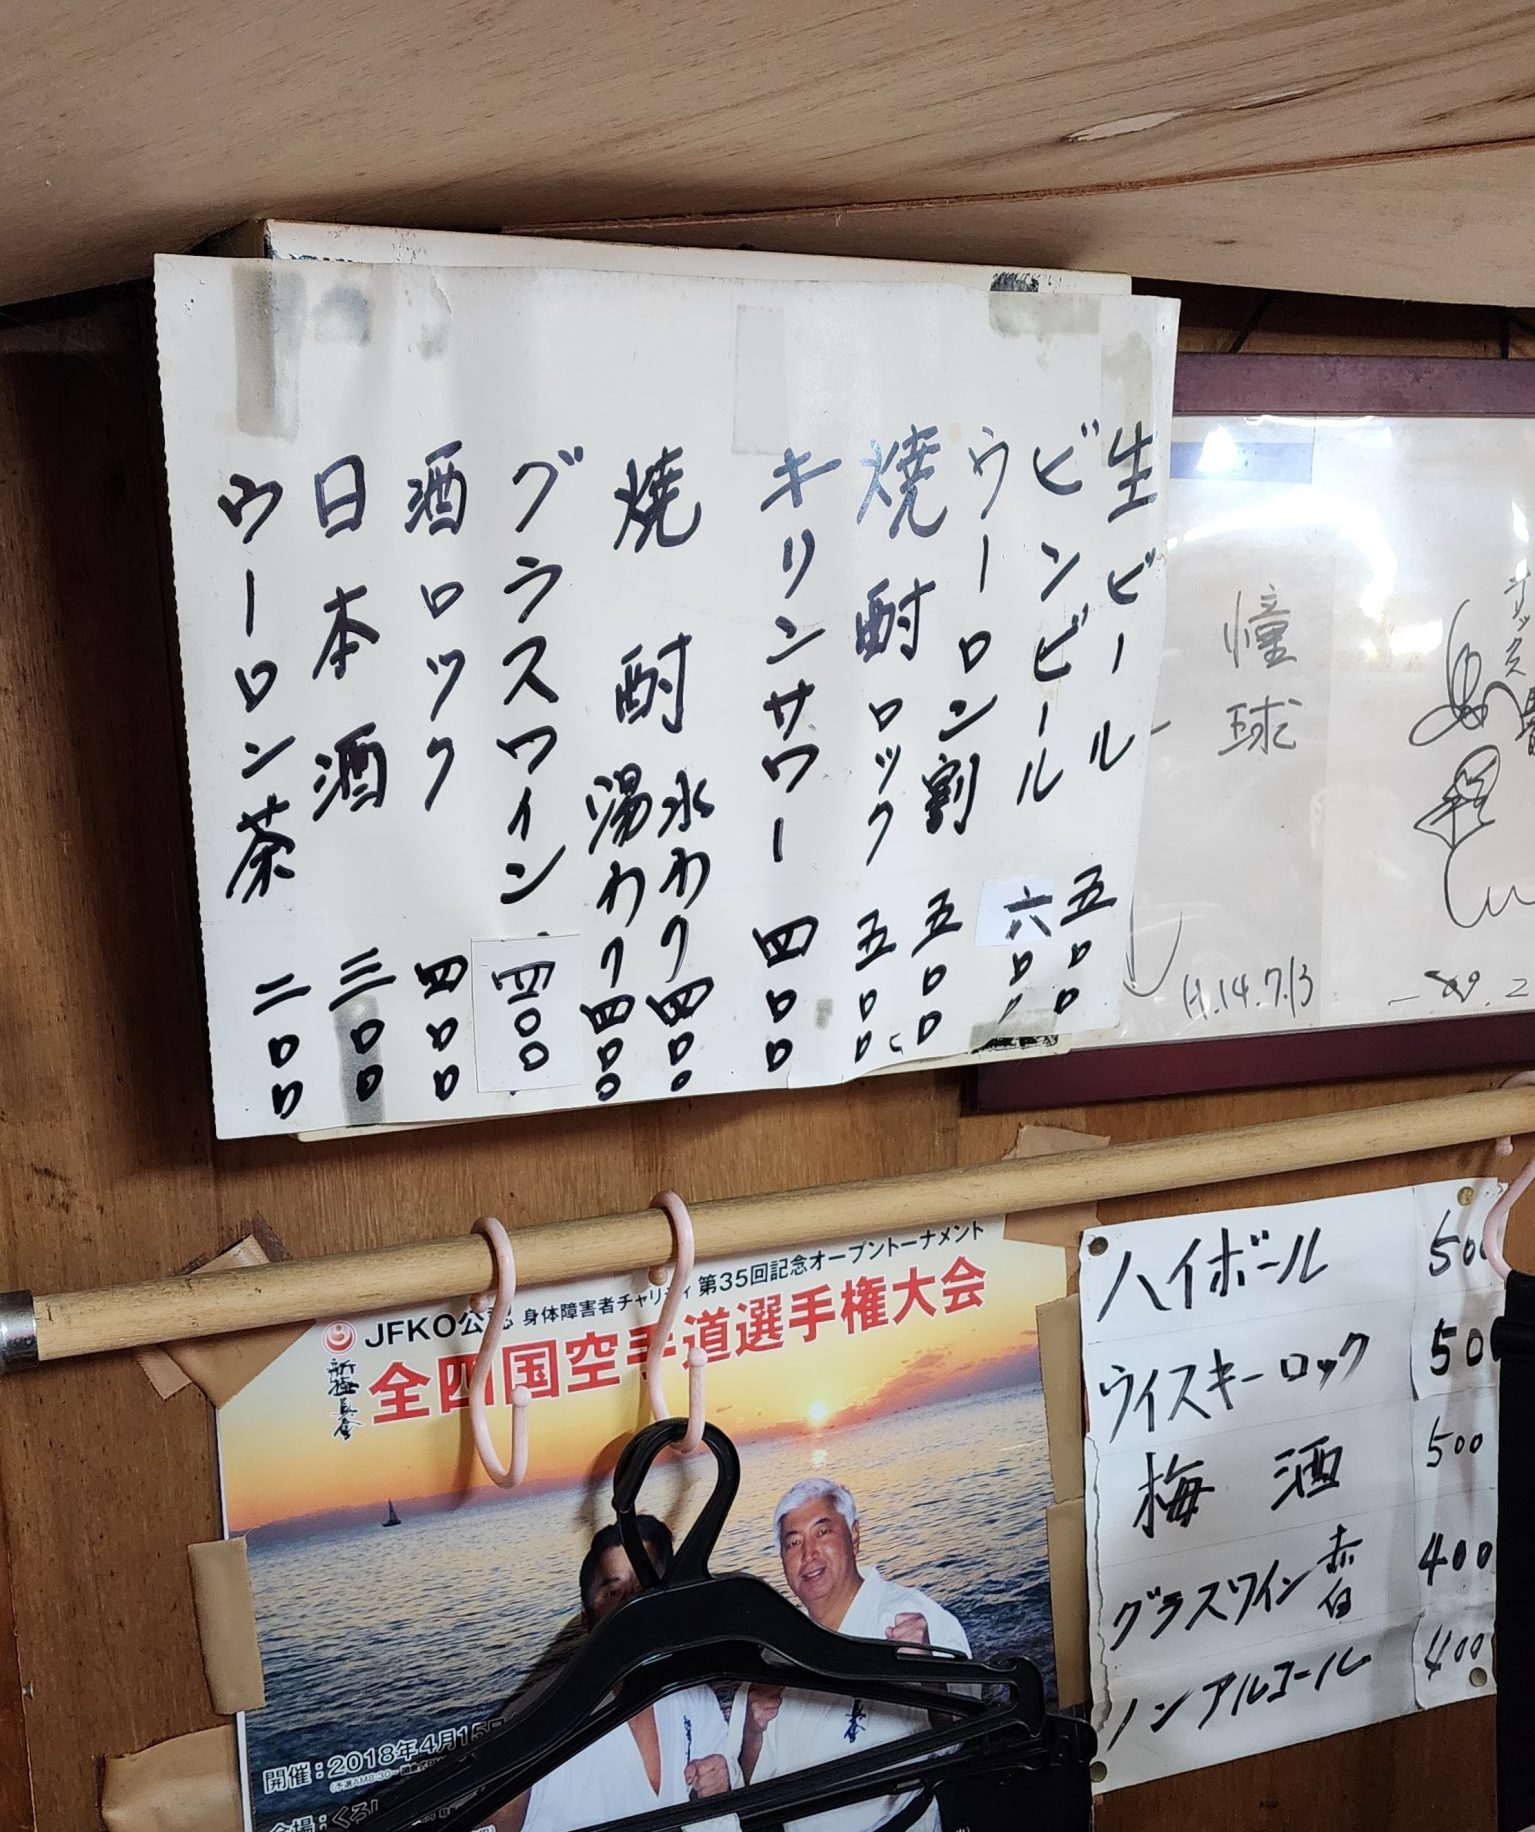 生ビール 五〇〇
ビンビール 六〇〇
ウーロン割 五〇〇
焼酎ロック 五〇〇
キリンサワー 四〇〇
焼酎 水わり 四〇〇
湯わり 四〇〇
グラスワイン 四〇〇
酒ロック 四〇〇
日本酒 三〇〇
ウーロン茶 二〇〇
憧球
H.14.7.13
JFKO公認 身体障害者チャリティ 第35回記念オープントーナメント
全四国空手道選手権大会
新極真会
開催:2018年4月15
ハイボール 500
ウイスキーロック 500
梅酒 500
グラスワイン 赤 白 400
ノンアルコール 400